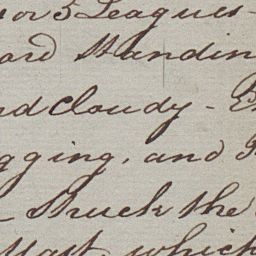 or 5 Leagues -
ard Standin
nd Cloudy - E
gging, and
- Struck the
Mast, which